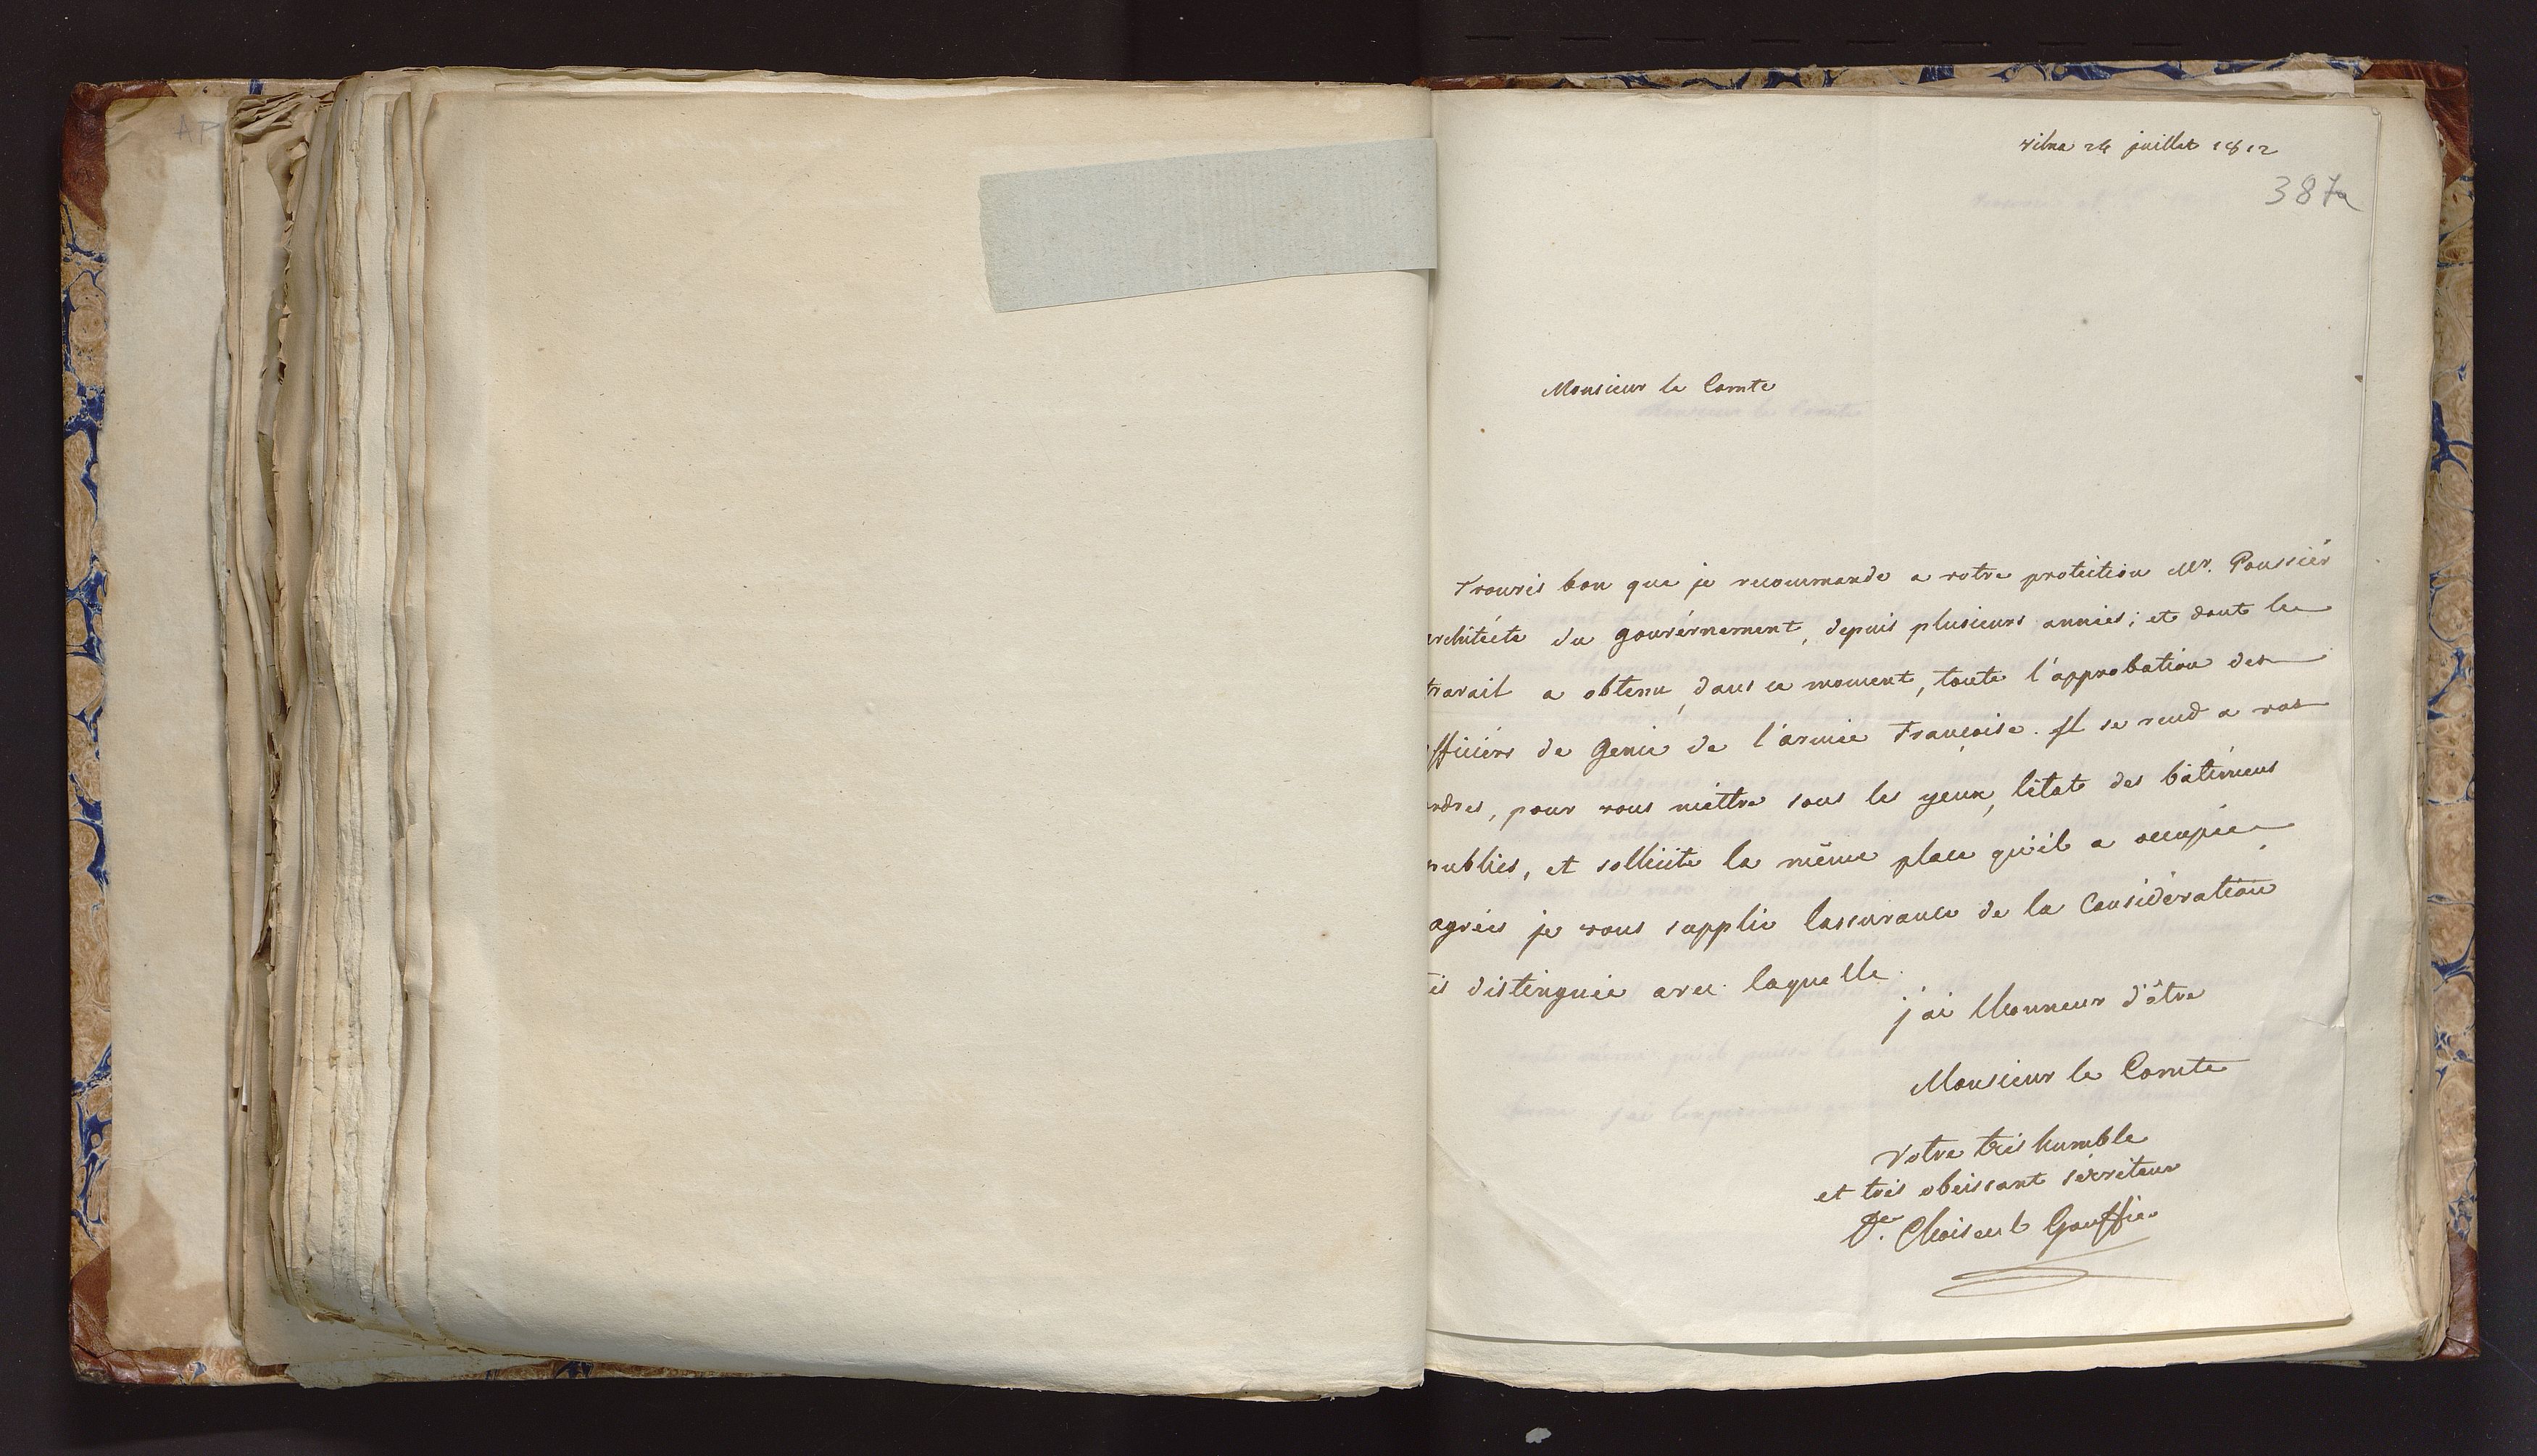 AP
Vilna 24 juillet 1812
387a
Monsieur le Comte
Trouvés bon que je recommande a votre protection Mr. Poussiér
architécte du gouvérnement, depuis plusieurs années; et dont le
travail a obtenu, dans ce moment, toute l'approbation des
officiérs de Genie de l'armée Françoise. Il se rend a vos
ordres, pour vous méttre sous les yeux, létat des bâtimens
publics, et sollicite la même place qu'il a occupée.
agréés je vous supplie lassurance de la Considération
distinguée avec laquelle
j'ai lhonneur d'être
Monsieur le Comte
Votre très humble
et très obeissant sérviteur
Choiseul Gouffier